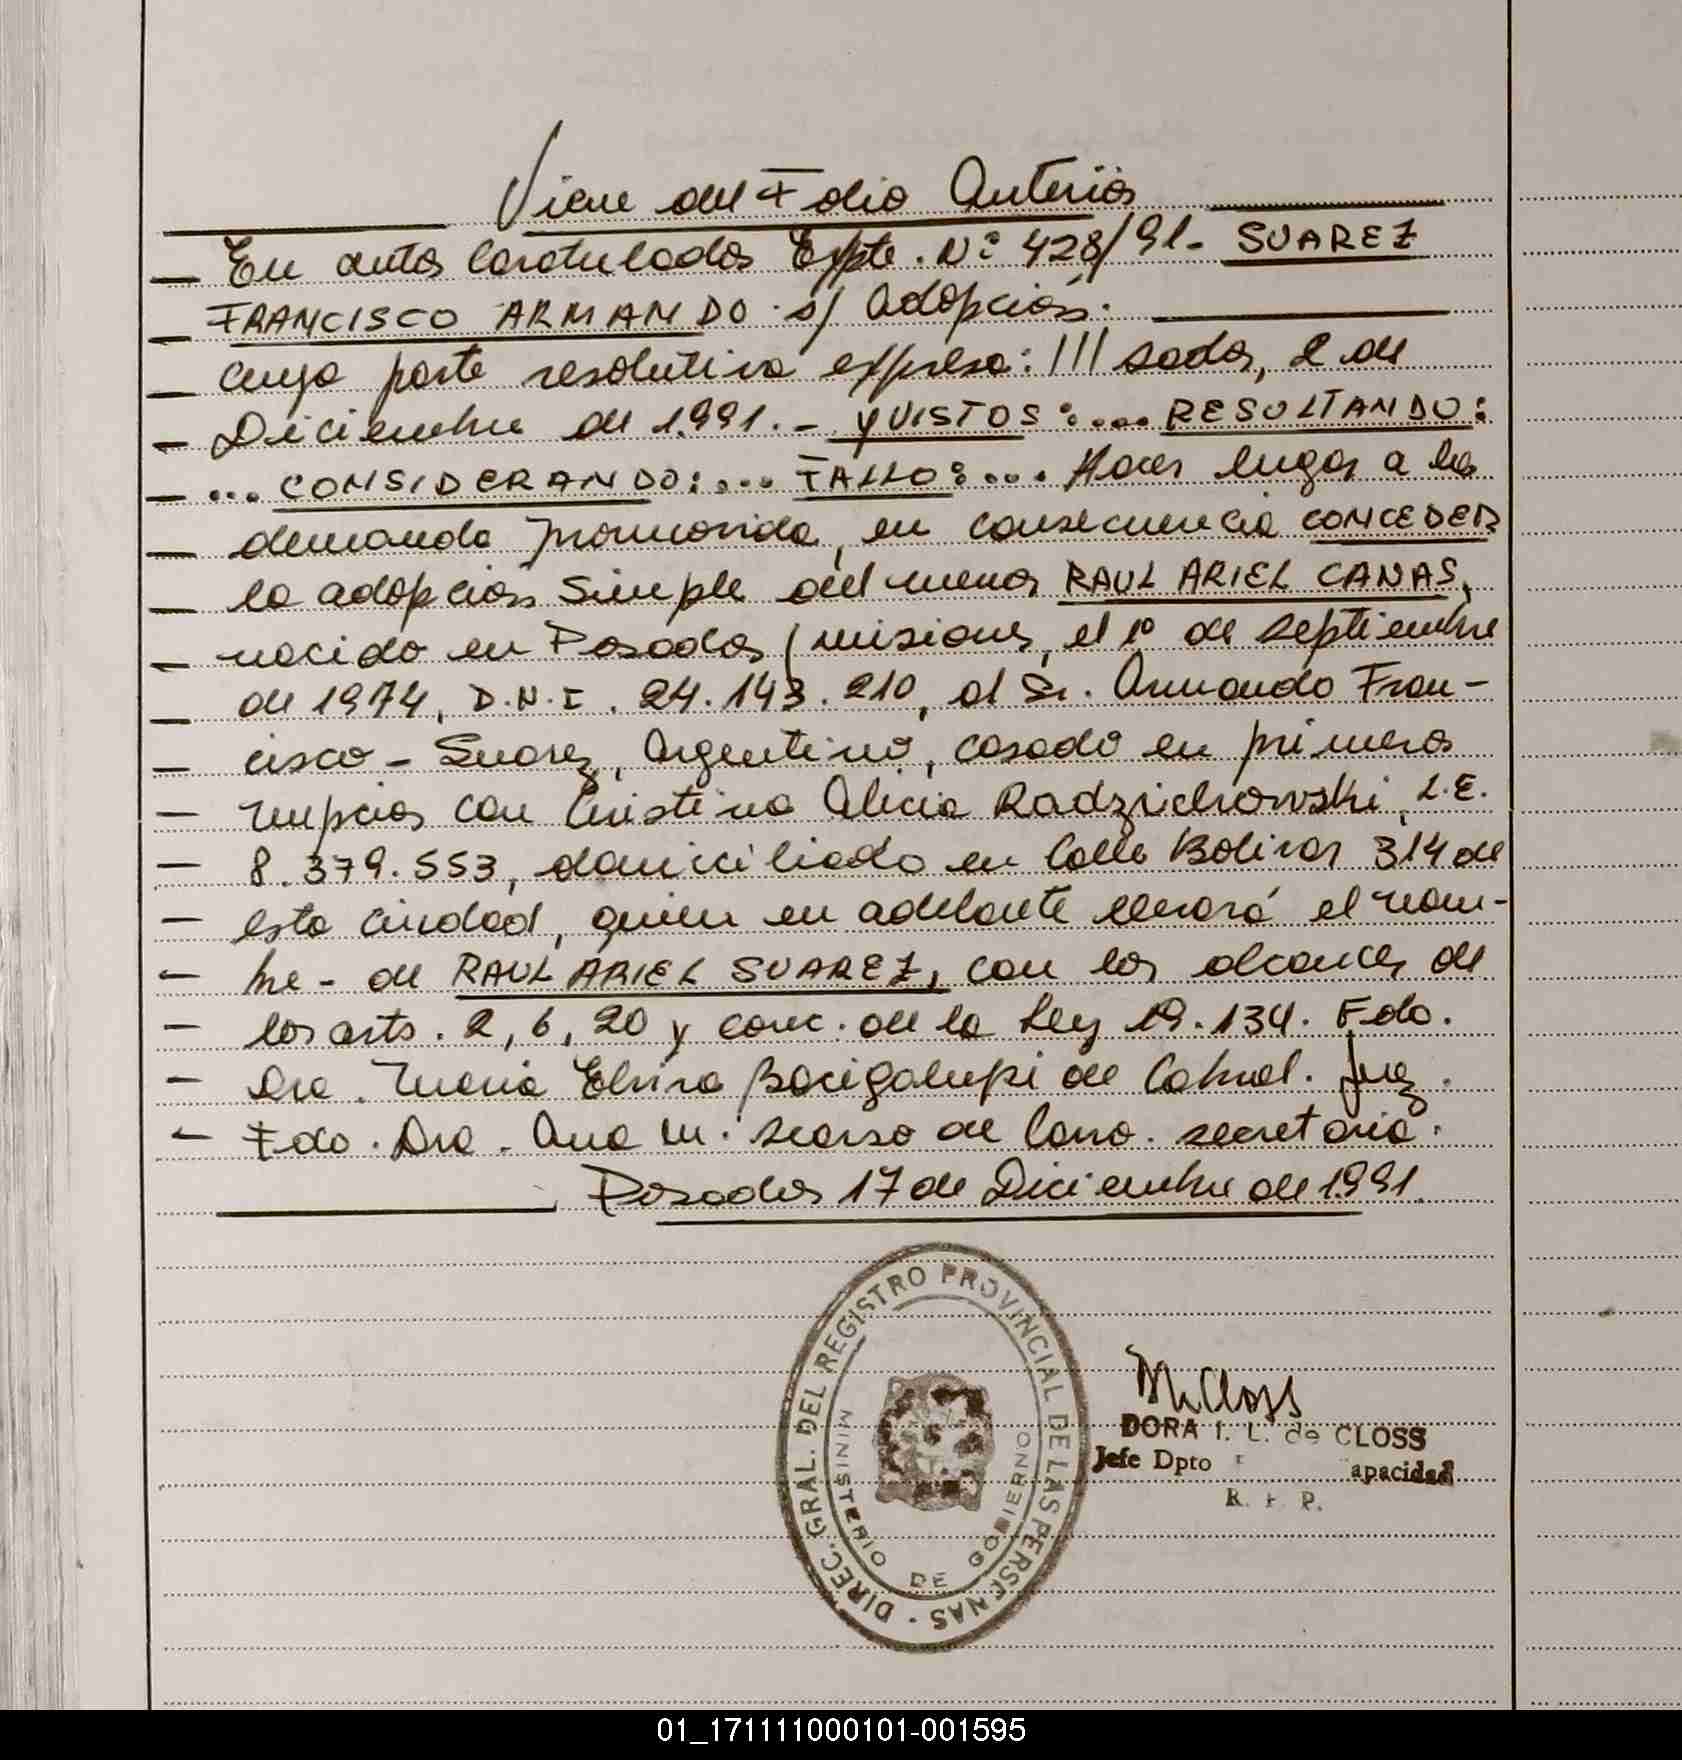 Viene del Folio Anterior
En autos Caratulados Expte. Nº 428/91- SUAREZ
FRANCISCO ARMANDO s/ Adopción.
Cuya parte resolutiva expresa: ///sadas, 2 de
Diciembre de 1.991.- Y VISTOS:.... RESULTANDO:
... CONSIDERANDO:.... FALLO:.... Hacer lugar a la
demanda promovida, en consecuencia CONCEDER
la adopción Simple del menor RAUL ARIEL CANAS,
nacido en Posadas, Misiones, el 1º de septiembre
de 1974, D.N.I. 24.143.210, al Sr. Armando Fran-
cisco - Suarez, Argentino, casado en primeras
nupcias con Cristina Alicia Radzichowski, L.E.
8.379.553, domiciliado en Calle Bolivar 314 de
esta Ciudad, quien en adelante llevará el nom-
bre - de RAUL ARIEL SUAREZ, con los alcances de
los arts. 2, 6, 20 y conc. de la Ley 19.134. Fdo.
Dra. Maria Elvira Bacigalupi de Cabral. Juez.
Fdo. Dra. Ana M. de Carro. secretaria.
Posadas 17 de Diciembre de 1991.
DIREC. GRAL. DEL REGISTRO PROVINCIAL DE LAS PERSONAS
MINISTERIO DE GOBIERNO
MCloss
DORA I. L. de CLOSS
Jefe Dpto apacidad
R. P.
01_171111000101-001595